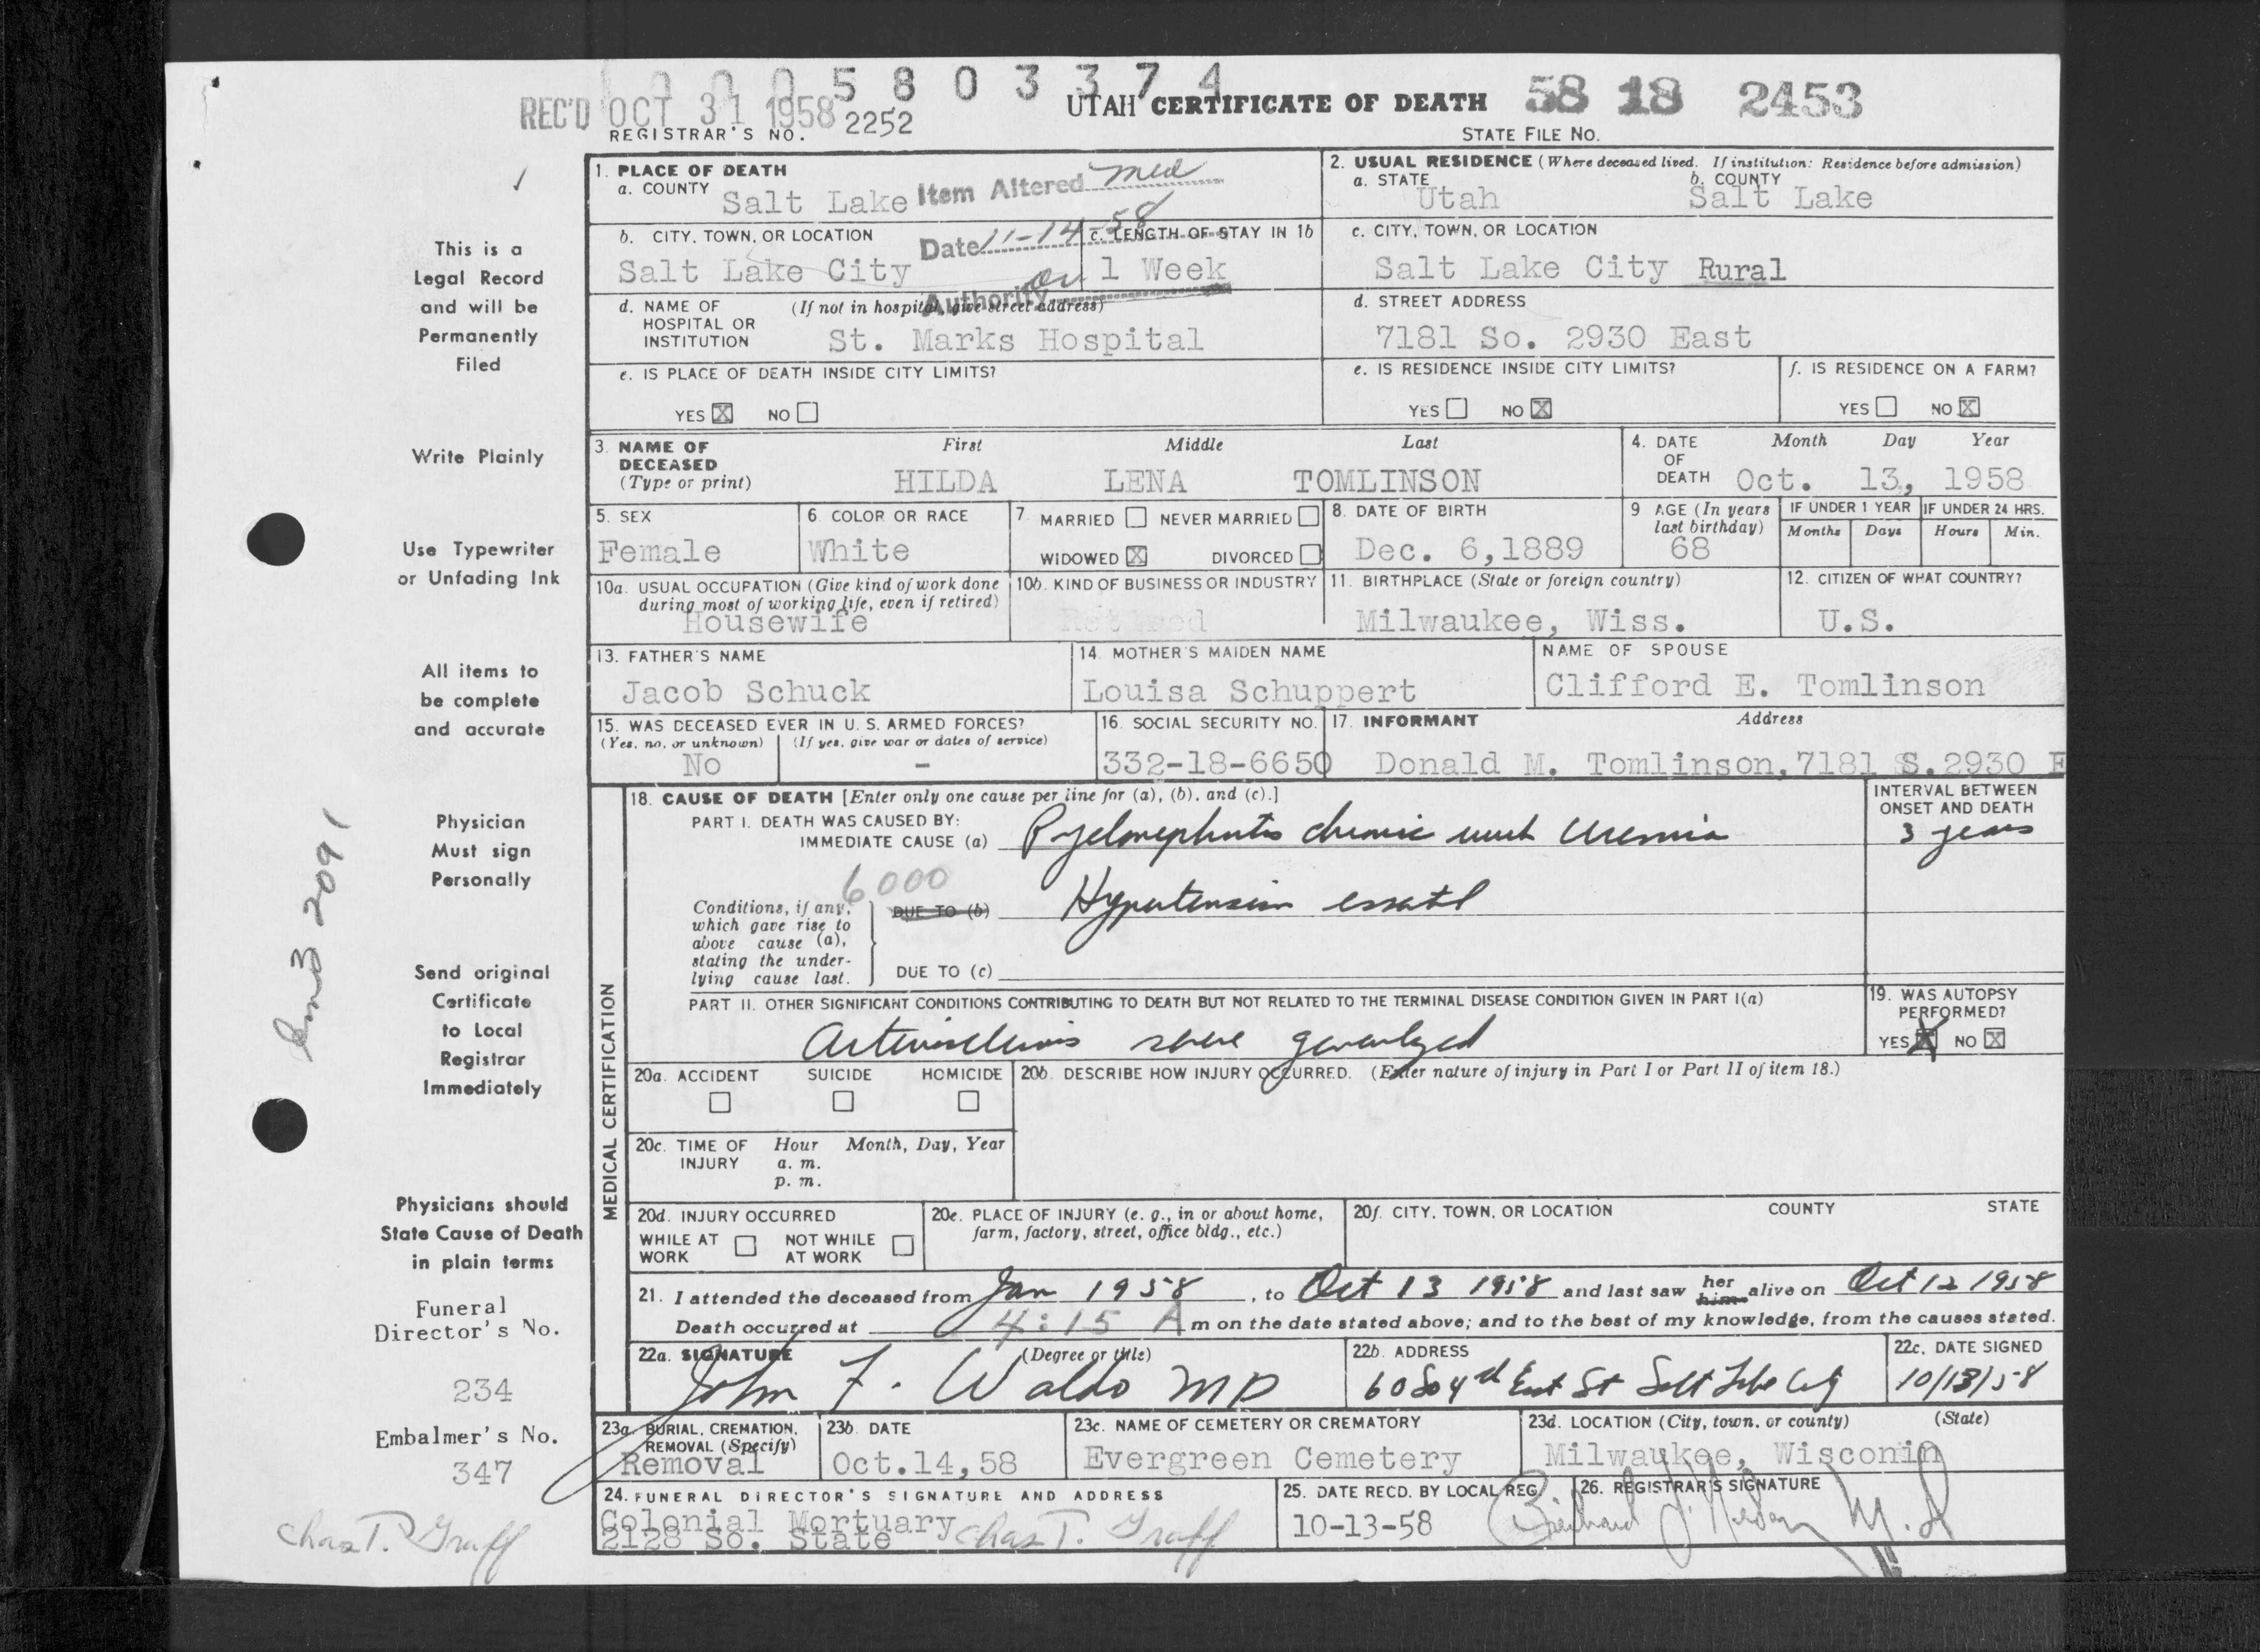 0 0 0 5 8 0 3 3 7 4
REC'D OCT 31 1958
REGISTRAR'S NO. 2252
UTAH CERTIFICATE OF DEATH
58 18 2453
STATE FILE NO.
1. PLACE OF DEATH
a. COUNTY
Salt Lake
Item Altered med
Date 11-14-58
Authority
2. USUAL RESIDENCE (Where deceased lived. If institution: Residence before admission)
a. STATE
Utah
b. COUNTY
Salt Lake
b. CITY, TOWN, OR LOCATION
Salt Lake City
c. LENGTH OF STAY IN 1b
1 Week
c. CITY, TOWN, OR LOCATION
Salt Lake City Rural
d. NAME OF HOSPITAL OR INSTITUTION
(If not in hospital, give street address)
St. Marks Hospital
d. STREET ADDRESS
7181 So. 2930 East
e. IS PLACE OF DEATH INSIDE CITY LIMITS?
YES X NO
e. IS RESIDENCE INSIDE CITY LIMITS?
YES NO X
f. IS RESIDENCE ON A FARM?
YES NO X
3. NAME OF DECEASED (Type or print)
First Middle Last
HILDA LENA TOMLINSON
4. DATE OF DEATH
Month Day Year
Oct. 13, 1958
5. SEX
Female
6. COLOR OR RACE
White
7. MARRIED NEVER MARRIED
WIDOWED X DIVORCED
8. DATE OF BIRTH
Dec. 6,1889
9 AGE (In years last birthday)
68
IF UNDER 1 YEAR
Months Days
IF UNDER 24 HRS.
Hours Min.
10a. USUAL OCCUPATION (Give kind of work done during most of working life, even if retired)
Housewife
10b. KIND OF BUSINESS OR INDUSTRY
Retired
11. BIRTHPLACE (State or foreign country)
Milwaukee, Wiss.
12. CITIZEN OF WHAT COUNTRY?
U.S.
13. FATHER'S NAME
Jacob Schuck
14. MOTHER'S MAIDEN NAME
Louisa Schuppert
NAME OF SPOUSE
Clifford E. Tomlinson
15. WAS DECEASED EVER IN U. S. ARMED FORCES?
(Yes, no, or unknown) (If yes, give war or dates of service)
No -
16. SOCIAL SECURITY NO.
332-18-6650
17. INFORMANT Address
Donald M. Tomlinson,7181 S.2930 E
MEDICAL CERTIFICATION
18. CAUSE OF DEATH [Enter only one cause per line for (a), (b), and (c).]
PART I. DEATH WAS CAUSED BY:
IMMEDIATE CAUSE (a) Pyelonephritis chronic with Uremia
INTERVAL BETWEEN ONSET AND DEATH
3 years
6000
Conditions, if any, which gave rise to above cause (a), stating the underlying cause last.
DUE TO (b) Hypertension essatl
DUE TO (c)
PART II. OTHER SIGNIFICANT CONDITIONS CONTRIBUTING TO DEATH BUT NOT RELATED TO THE TERMINAL DISEASE CONDITION GIVEN IN PART I(a)
Arteriosclerosis severe generalized
19. WAS AUTOPSY PERFORMED?
YES X NO X
20a. ACCIDENT SUICIDE HOMICIDE
20b. DESCRIBE HOW INJURY OCCURRED. (Enter nature of injury in Part I or Part II of item 18.)
20c. TIME OF INJURY
Hour Month, Day, Year
a. m.
p. m.
20d. INJURY OCCURRED
WHILE AT WORK NOT WHILE AT WORK
20e. PLACE OF INJURY (e. g., in or about home, farm, factory, street, office bldg., etc.)
20f. CITY, TOWN, OR LOCATION COUNTY STATE
21. I attended the deceased from Jan 1958, to Oct 13 1958 and last saw her him alive on Oct 12 1958
Death occurred at 4:15 A m on the date stated above; and to the best of my knowledge, from the causes stated.
22a. SIGNATURE (Degree or title)
John F. Waldo MD
22b. ADDRESS
60 So 4th East St Salt Lake City
22c. DATE SIGNED
10/13/58
23a. BURIAL, CREMATION, REMOVAL (Specify)
Removal
23b. DATE
Oct.14,58
23c. NAME OF CEMETERY OR CREMATORY
Evergreen Cemetery
23d. LOCATION (City, town, or county) (State)
Milwaukee, Wisconin
24. FUNERAL DIRECTOR'S SIGNATURE AND ADDRESS
Colonial Mortuary
2128 So. State
Chas T. Graff
25. DATE RECD. BY LOCAL REG.
10-13-58
26. REGISTRAR'S SIGNATURE
M.D
This is a
Legal Record
and will be
Permanently
Filed
Write Plainly
Use Typewriter
or Unfading Ink
All items to
be complete
and accurate
Physician
Must sign
Personally
Send original
Certificate
to Local
Registrar
Immediately
Physicians should
State Cause of Death
in plain terms
Funeral
Director's No.
234
Embalmer's No.
347
Chas T. Graff
2091